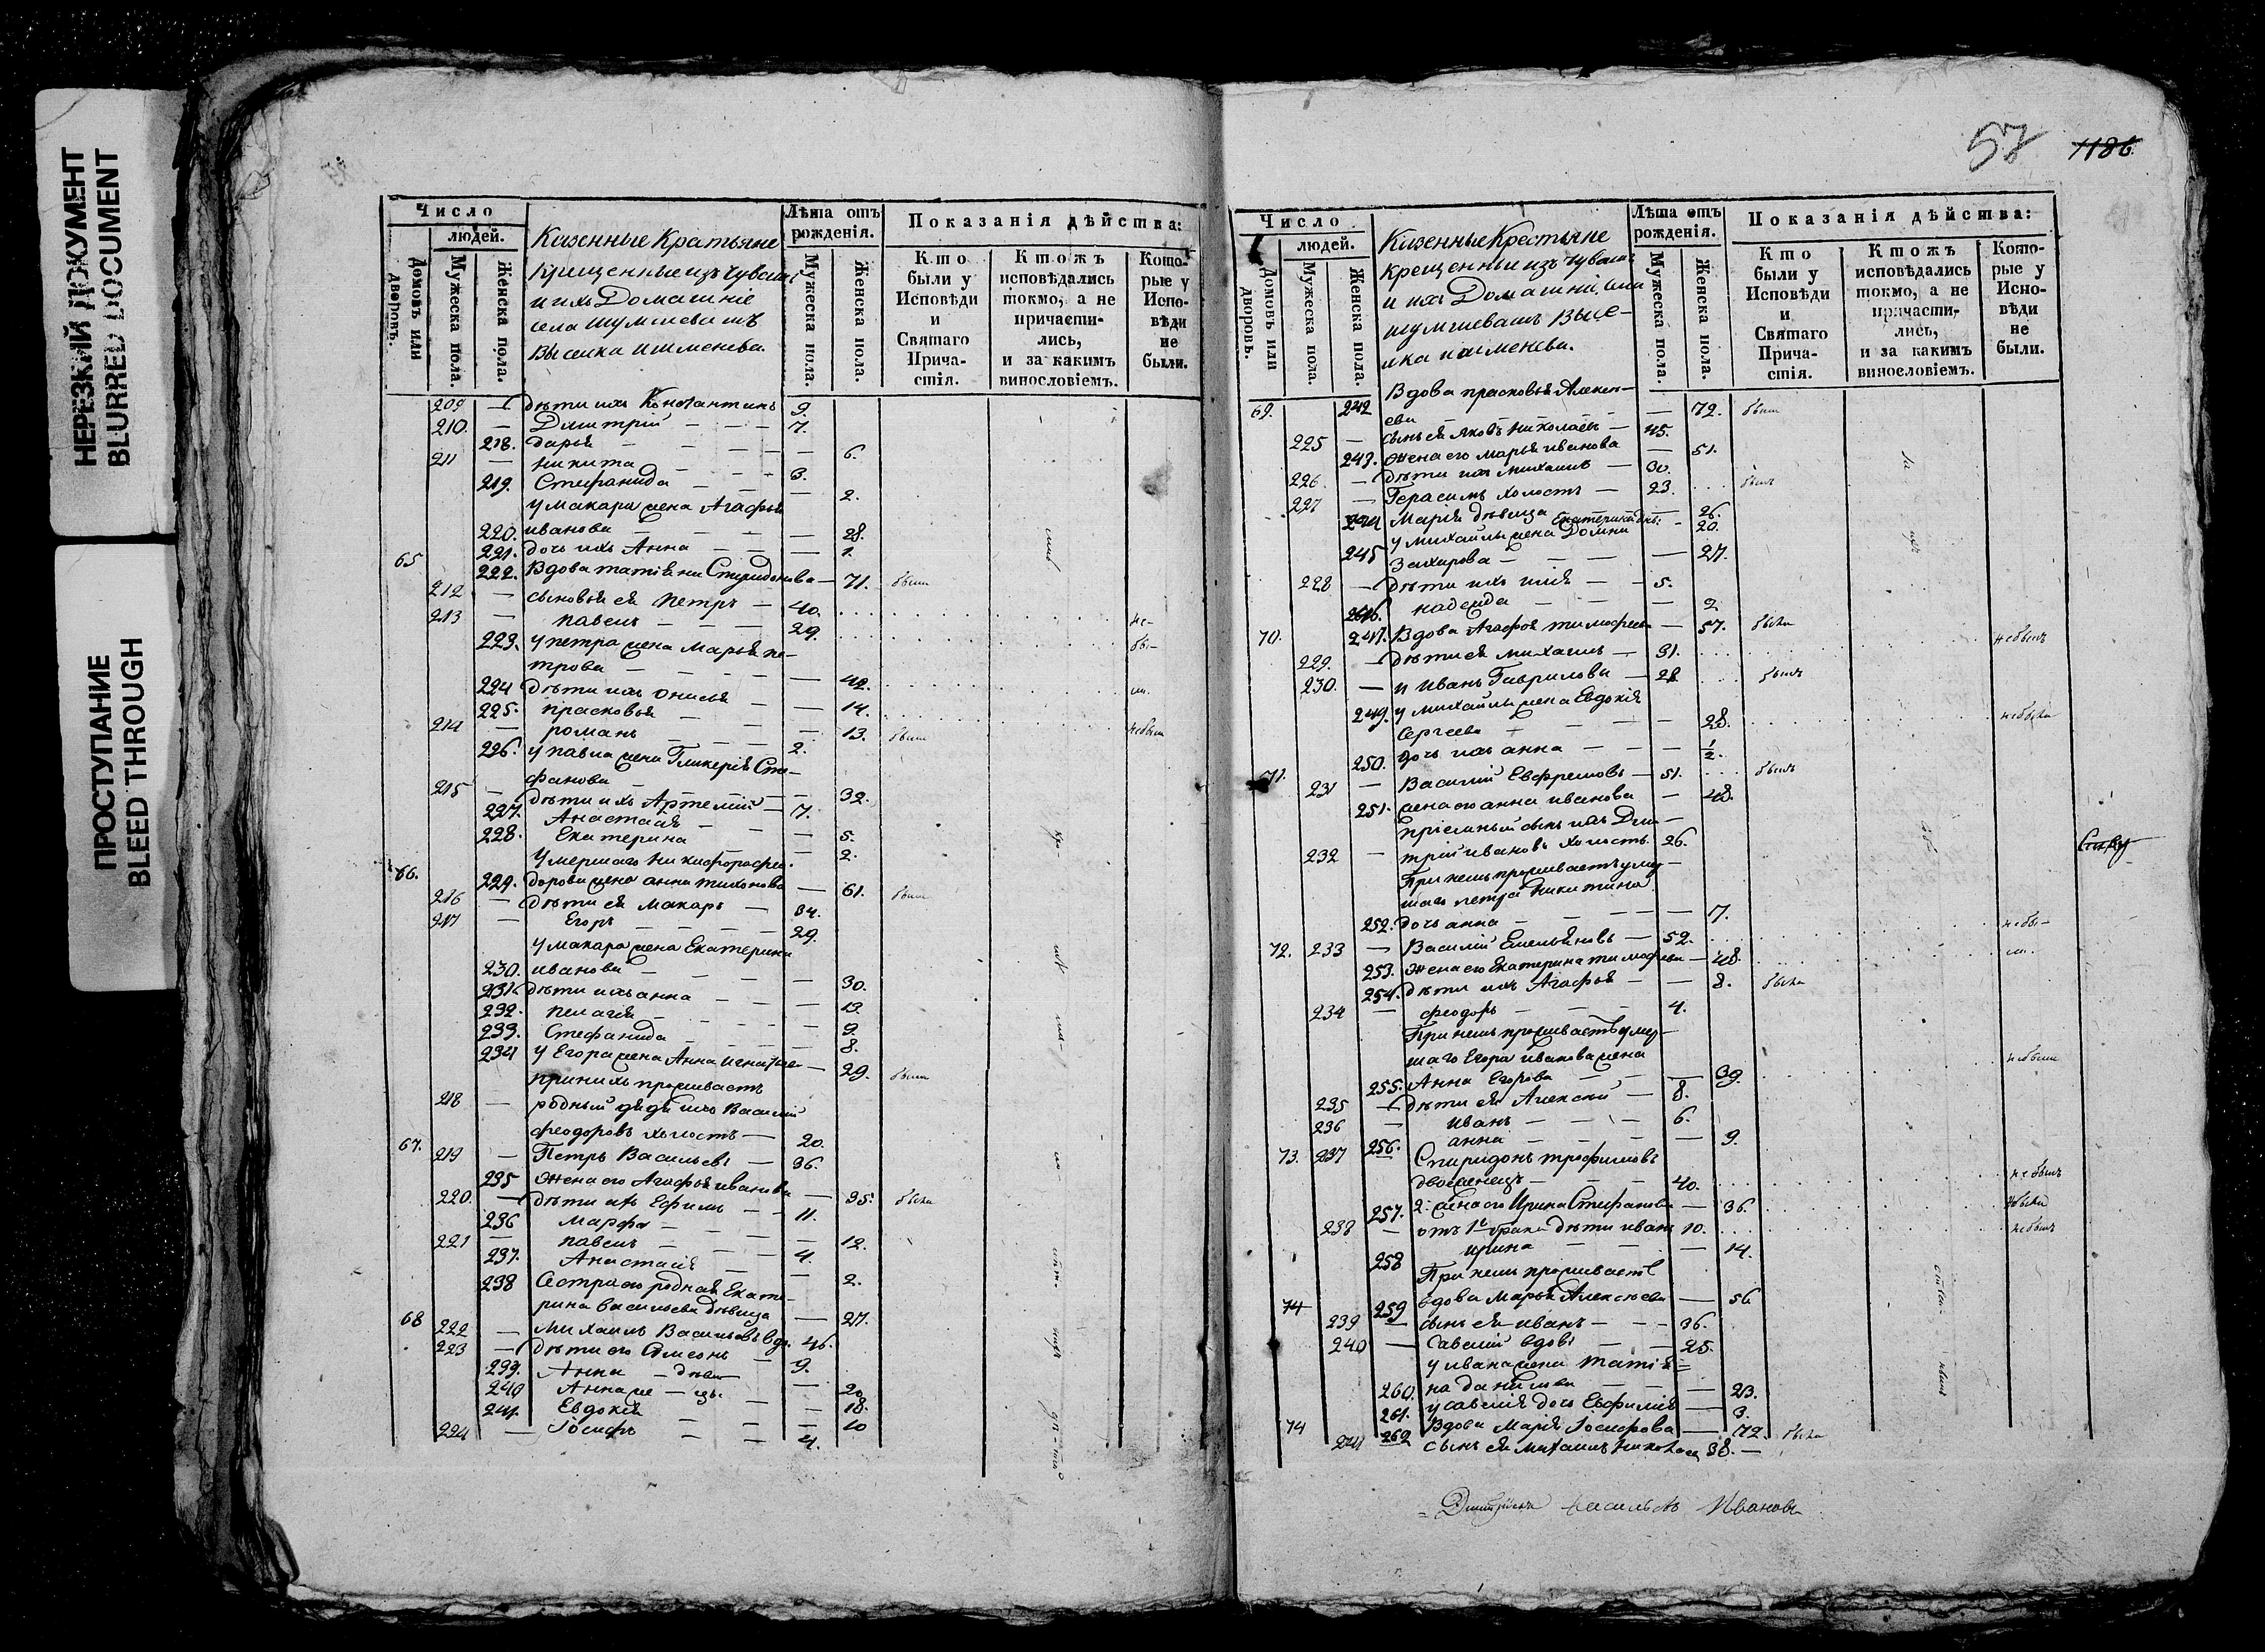 НЕРЕЗКИЙ ДОКУМЕНТ
BLURRED DOCUMENT
ПРОСТУПАНИЕ
BLEED THROUGH
57 1186
Число
людей.
Домовъ или дворовъ.
Мужеска пола.
Женска пола.
Казенные Крестьяне
крещенные изъ чувашъ
и ихъ Домашніе
села Шумшевашъ
Выселка Ишменева.
Лѣта отъ рожденія.
Мужеска пола.
Женска пола.
Показанія дѣйства:
Кто были у Исповѣди и Святаго Прича-стія.
Ктожъ исповѣдались токмо, а не причасти-лись, и за какимъ винословіемъ.
Кото-рые у Испо-вѣди не были.
209 — дѣти ихъ Константинъ 9.
210. — Димитрий — — — 7.
218. дарья — — — — 6.
211 — никита — — — 3.
219. Стефанида — — — 2.
у макара жена Агафья
220. иванова — — — — 28.
221. дочь ихъ Анна — — — 1.
65. 222. Вдова татіяна Спиридонова — 71. была
212 — сыновья ея петръ — 40.
213 — павелъ — — — 29. не-
223. у петра жена Марья пе- бы-
трова — — — — 42.
224 дѣти ихъ онисья — — 14. ли.
225. прасковья — — — 13. были
214 — романъ — — — 2. небыли
226. у павла жена Гликерія Сте-
фанова — — — 32.
215 — дѣти ихъ Артемій — 7.
227. Анастасія — — 5.
228. Екатерина — 2.
умершаго никифора фео-
66. 229. дорова жена анна тихонова — 61. была
216 — дѣти ея макаръ — 34.
217 — Егоръ — — — — 29.
у макара жена Екатерина
230. иванова — — — — 30.
231. дѣти ихъ анна — — — 13.
232. пелагія — — — — 9.
233. Стефанида — — — — 8.
234 у Егора жена Анна игнатьева — 29. была
при нихъ проживаетъ
218 — родный дядя ихъ Василій
феодоровъ холостъ — 20.
67. 219 — Петръ Васильевъ — 36.
235 жена его Агафья иванова — 35. была
220. — дѣти ихъ Ефимъ — — 11.
236 марфа — — — — 12.
221 — павелъ — — — 4.
237. Анастасія — — 2.
238 Сестра его родная Екате-
рина васильева дѣвица — 27.
68 222 — михаилъ Васильевъ вдо. 46.
223 — дѣти его Симеонъ — 9.
239. Анна — дѣви — 20
240 Анна же — цы. — 18.
241. Евдокія — — — 10
224 — Іосифъ — — — 4.
Число
людей.
Домовъ или дворовъ.
Мужеска пола.
Женска пола.
Казенные Крестьяне
крещенные изъ чувашъ
и ихъ Домашніе, села
шумшевашъ Высе-
лка ишменева.
Лѣта отъ рожденія.
Мужеска пола.
Женска пола.
Показанія дѣйства:
Кто были у Исповѣди и Святаго Прича-стія.
Ктожъ исповѣдались токмо, а не причасти-лись, и за какимъ винословіемъ.
Кото-рые у Испо-вѣди не были.
69. 242 Вдова прасковья Алексе-
ева — — 72. была
225 — сынъ ея яковъ николаевъ — 45.
243. жена его марья иванова — 51.
226 — дѣти ихъ михаилъ — 30.
227 — Герасимъ холостъ — 23. былъ
244 Марія дѣвица 26. Екатерина дѣв: — 20.
у михаилы жена Домна
245 Захарова — — — — 27.
228 — дѣти ихъ илія — — 5.
246. надежда — — — 2
70. 247. Вдова Агафья тимофеева — 57. была
229. — дѣти ея михаилъ — 31. небылъ
230. — и иванъ Гавриловы — 28 былъ
249. у михаилы жена Евдокія
Сергеева — — — — 28. небыла
250. дочь ихъ анна — — — ½.
71. 231 — Василий Евфремовъ — 51. былъ
251. жена его анна иванова — 48.
пріемный сынъ ихъ Дми-
232 — трий ивановъ холостъ. 26.
При немъ проживаетъ умер-
шаго петра никитина
252. дочь анна — — — — 7.
72. 233 — Василий Емельяновъ — 52. небы-
253. жена его Екатерина тимофеева — 48. ли.
254. дѣти ихъ Агафья — — 8. была
234 — феодоръ — — — 4.
При немъ проживаетъ умер-
шаго Егора иванова жена
255. Анна Егорова — — — 39. небыла
235 — дѣти ея Алексей — 8.
236 — иванъ — — — 6.
256. анна — — — — 9.
73. 237 Спиридонъ трофимовъ
двоеженецъ — — — 40. небылъ
257. 2 жена его Ирина Стефанова — 36. небыла
238 — отъ 1го брака дѣти иванъ 10. небылъ
258 ирина — — — 14.
При немъ проживаетъ
74 259 вдова Марья Алексѣева — 56
239 — сынъ ея иванъ — — 36.
240 — Савелий вдовъ — — 25.
у ивана жена татія=
260. на данилова — — — 23.
261. у савелія дочь Евфимія — 3.
74 262 Вдова Марія Іосифова — 72. была
241 сынъ ея михаилъ никола 38. —
Дмитріевъ Васильевъ Ивановъ